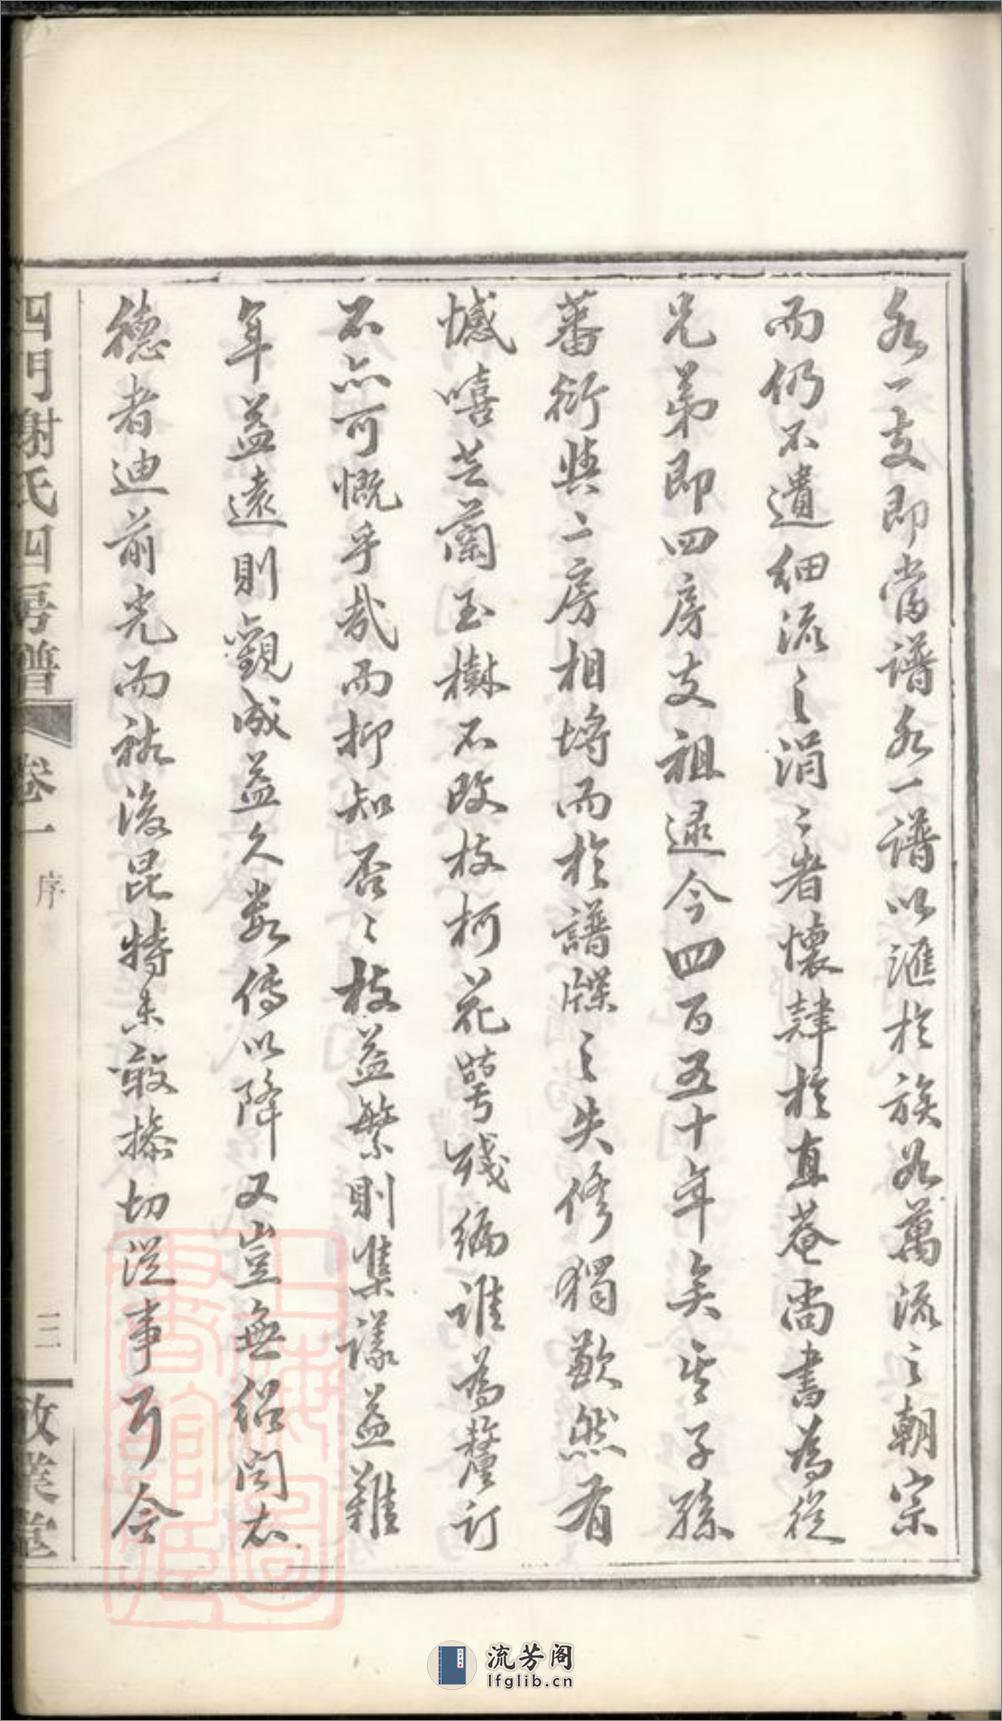 各一支即當譜各一譜以滙於族如萬流之朝宗
而仍不遺細流之涓〻者懷肆於直菴尚書為從
兄弟即四房支祖逮今四百五十年矣其子孫
蕃衍與二房相埒而於譜牒之失修獨歉然有
憾嘻芝蘭玉樹不改枝柯花萼殘編誰為釐訂
不亦可慨乎哉而抑知否〻枝益繁則集議益難
年益遠則觀成益久數傳以降又豈無紹聞衣
德者迪前光而裕後昆特未敢操切從事耳今
四門謝氏四房譜 卷一 序 三 業堂
上海圖書館藏
流芳阁
lfglib.cn